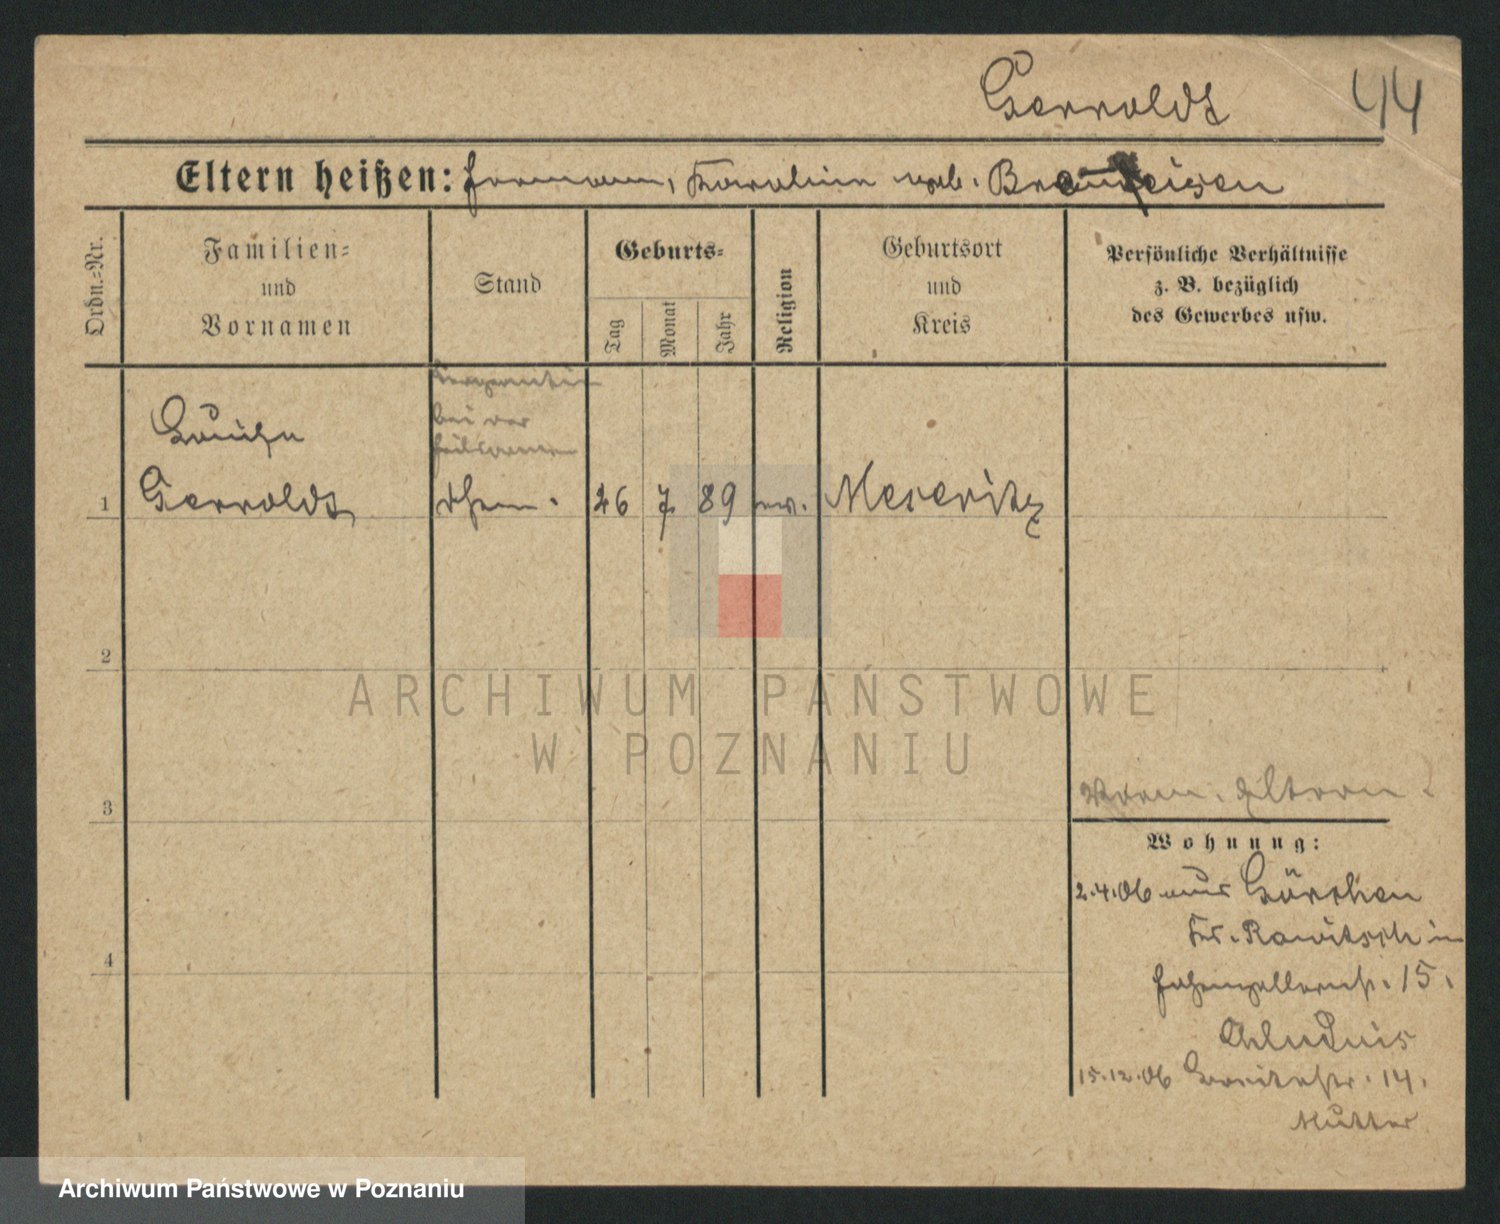 Gerroldt 44
Eltern heißen: Hermann, Karoline geb.
Ordn.-Nr.
Familien-
und
Vornamen
Stand
Geburts-
Tag
Monat
Jahr
Religion
Geburtsort
und
Kreis
Persönliche Verhältnisse
z. B. bezüglich
des Gewerbes usw.
bei der
Louise
1 Gerroldt 26 7 89 ev. Meseritz
2
3
4
Eltern
Wohnung:
2.4.06 aus Görchen
Kr. Rawitsch in
Hohenzollernstr. 15.
15.12.06 Breitestr. 14.
Mutter
ARCHIWUM PAŃSTWOWE
W POZNANIU
Archiwum Państwowe w Poznaniu